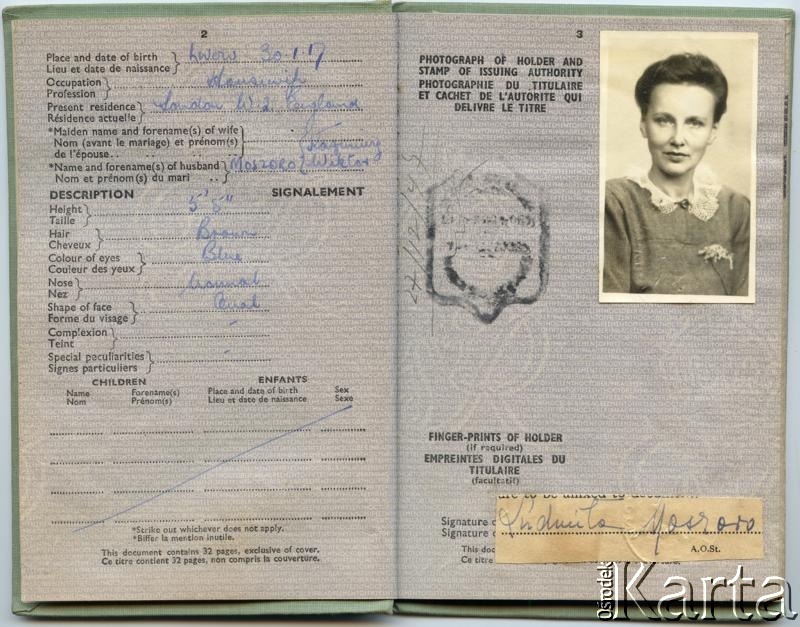 2
Place and date of birth } Lwow 30.1.17
Lieu et date de naissance
Occupation } Housewife
Profession
Present residence } London W.2. England
Résidence actuelle
*Maiden name and forename(s) of wife
Nom (avant le mariage) et prénom(s)
de l'épouse.. .. .. ..
Kazimierz
*Name and forename(s) of husband } MOSZORO Wiktor
Nom et prénom(s) du mari ..
DESCRIPTION SIGNALEMENT
Height } 5' 5"
Taille
Hair } Brown
Cheveux
Colour of eyes } Blue
Couleur des yeux
Nose } Normal
Nez
Shape of face } Oval
Forme du visage
Complexion } -
Teint
Special peculiarities } -
Signes particuliers
CHILDREN ENFANTS
Name Forename(s) Place and date of birth Sex
Nom Prénom(s) Lieu et date de naissance Sexe
*Strike out whichever does not apply.
*Biffer la mention inutile.
This document contains 32 pages, exclusive of cover.
Ce titre contient 32 pages, non compris la couverture.
3
PHOTOGRAPH OF HOLDER AND
STAMP OF ISSUING AUTHORITY
PHOTOGRAPHIE DU TITULAIRE
ET CACHET DE L'AUTORITE QUI
DELIVRE LE TITRE
FINGER-PRINTS OF HOLDER
(if required)
EMPREINTES DIGITALES DU
TITULAIRE
(facultatif)
Signature
Signature
Ludmila Moszoro
A.O.St.
This doc
Ce titre
ośrodek Karta